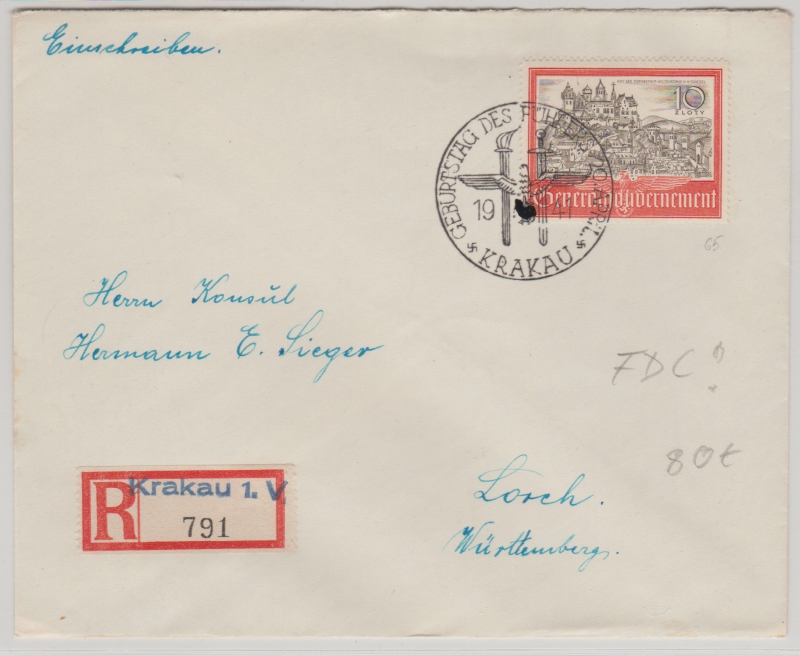 Einschreiben.
10
ZLOTY
Generalgouvernement
GEBURTSTAG DES FÜHRERS 20. APRIL
1941
KRAKAU
65
Herrn Konsul
Hermann E. Sieger
FDC
80€
R
Krakau 1. V
791
Lorch.
Württemberg.